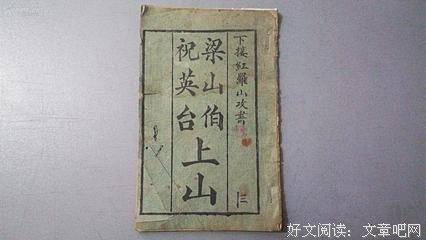 下接紅羅山攻書
梁山伯
祝英台
上山
三
好文阅读：文章吧网